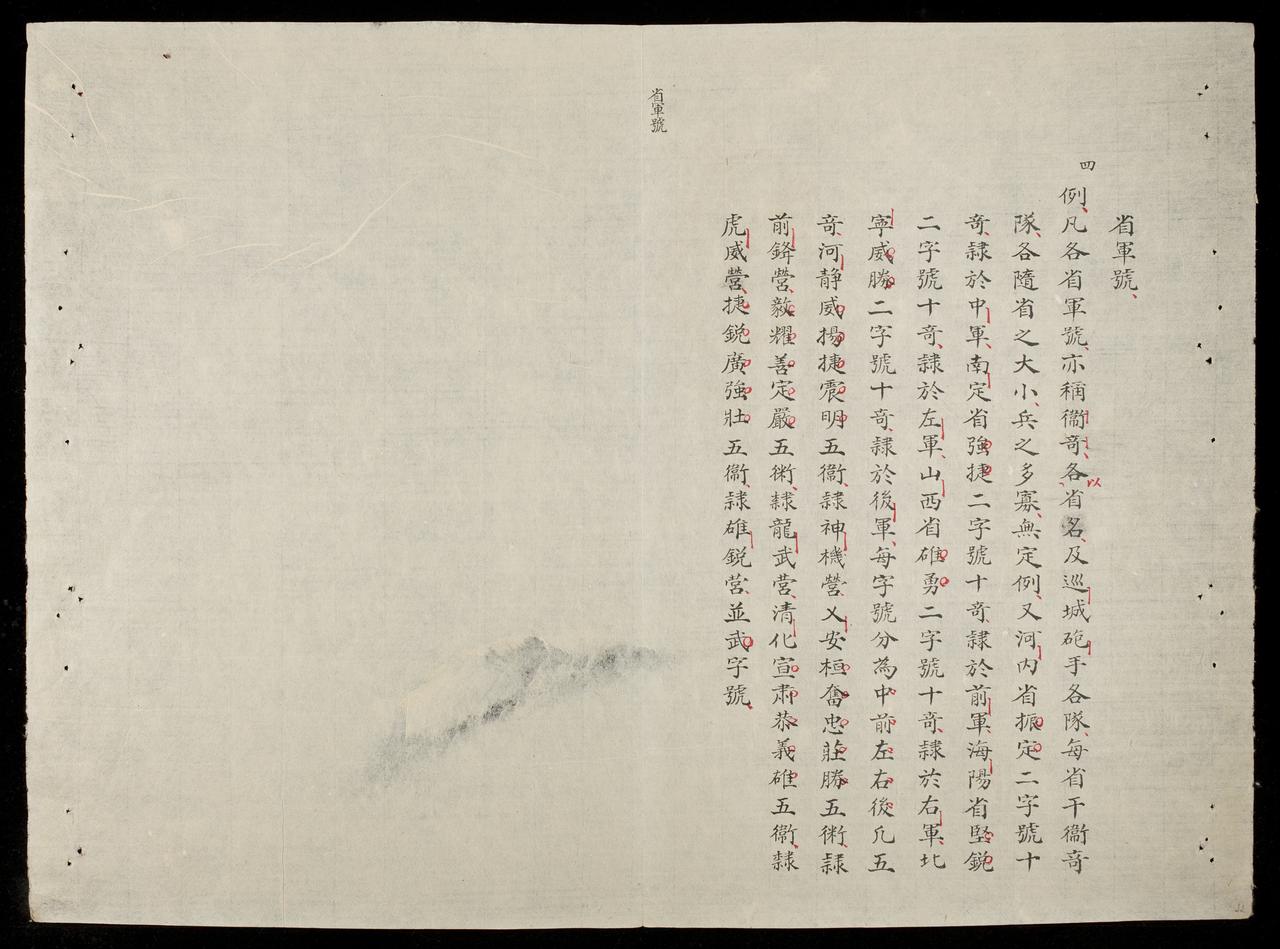 省軍號
四
例凡各省軍號亦稱衞竒各以省名及巡城砲手各隊每省干衞竒
隊各隨省之大小兵之多寡無定例又河內省振定二字號十
竒隸於中軍南定省強捷二字號十竒隸於前軍海陽省堅鋭
二字號十竒隸於左軍山西省雄勇二字號十竒隸於右軍北
寧威勝二字號十竒隸於後軍每字號分為中前左右後凡五
竒河静威揚捷震明五衞隸神機營乂安桓奮忠莊勝五衞隸
前鋒營毅耀善定嚴五衞隸龍武営清化宣肅恭義雄五衞隸
虎威營捷鋭廣強壯五衞隸雄鋭営並武字號
省軍號